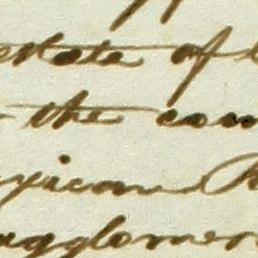 state of
the com
xican R
agglomer